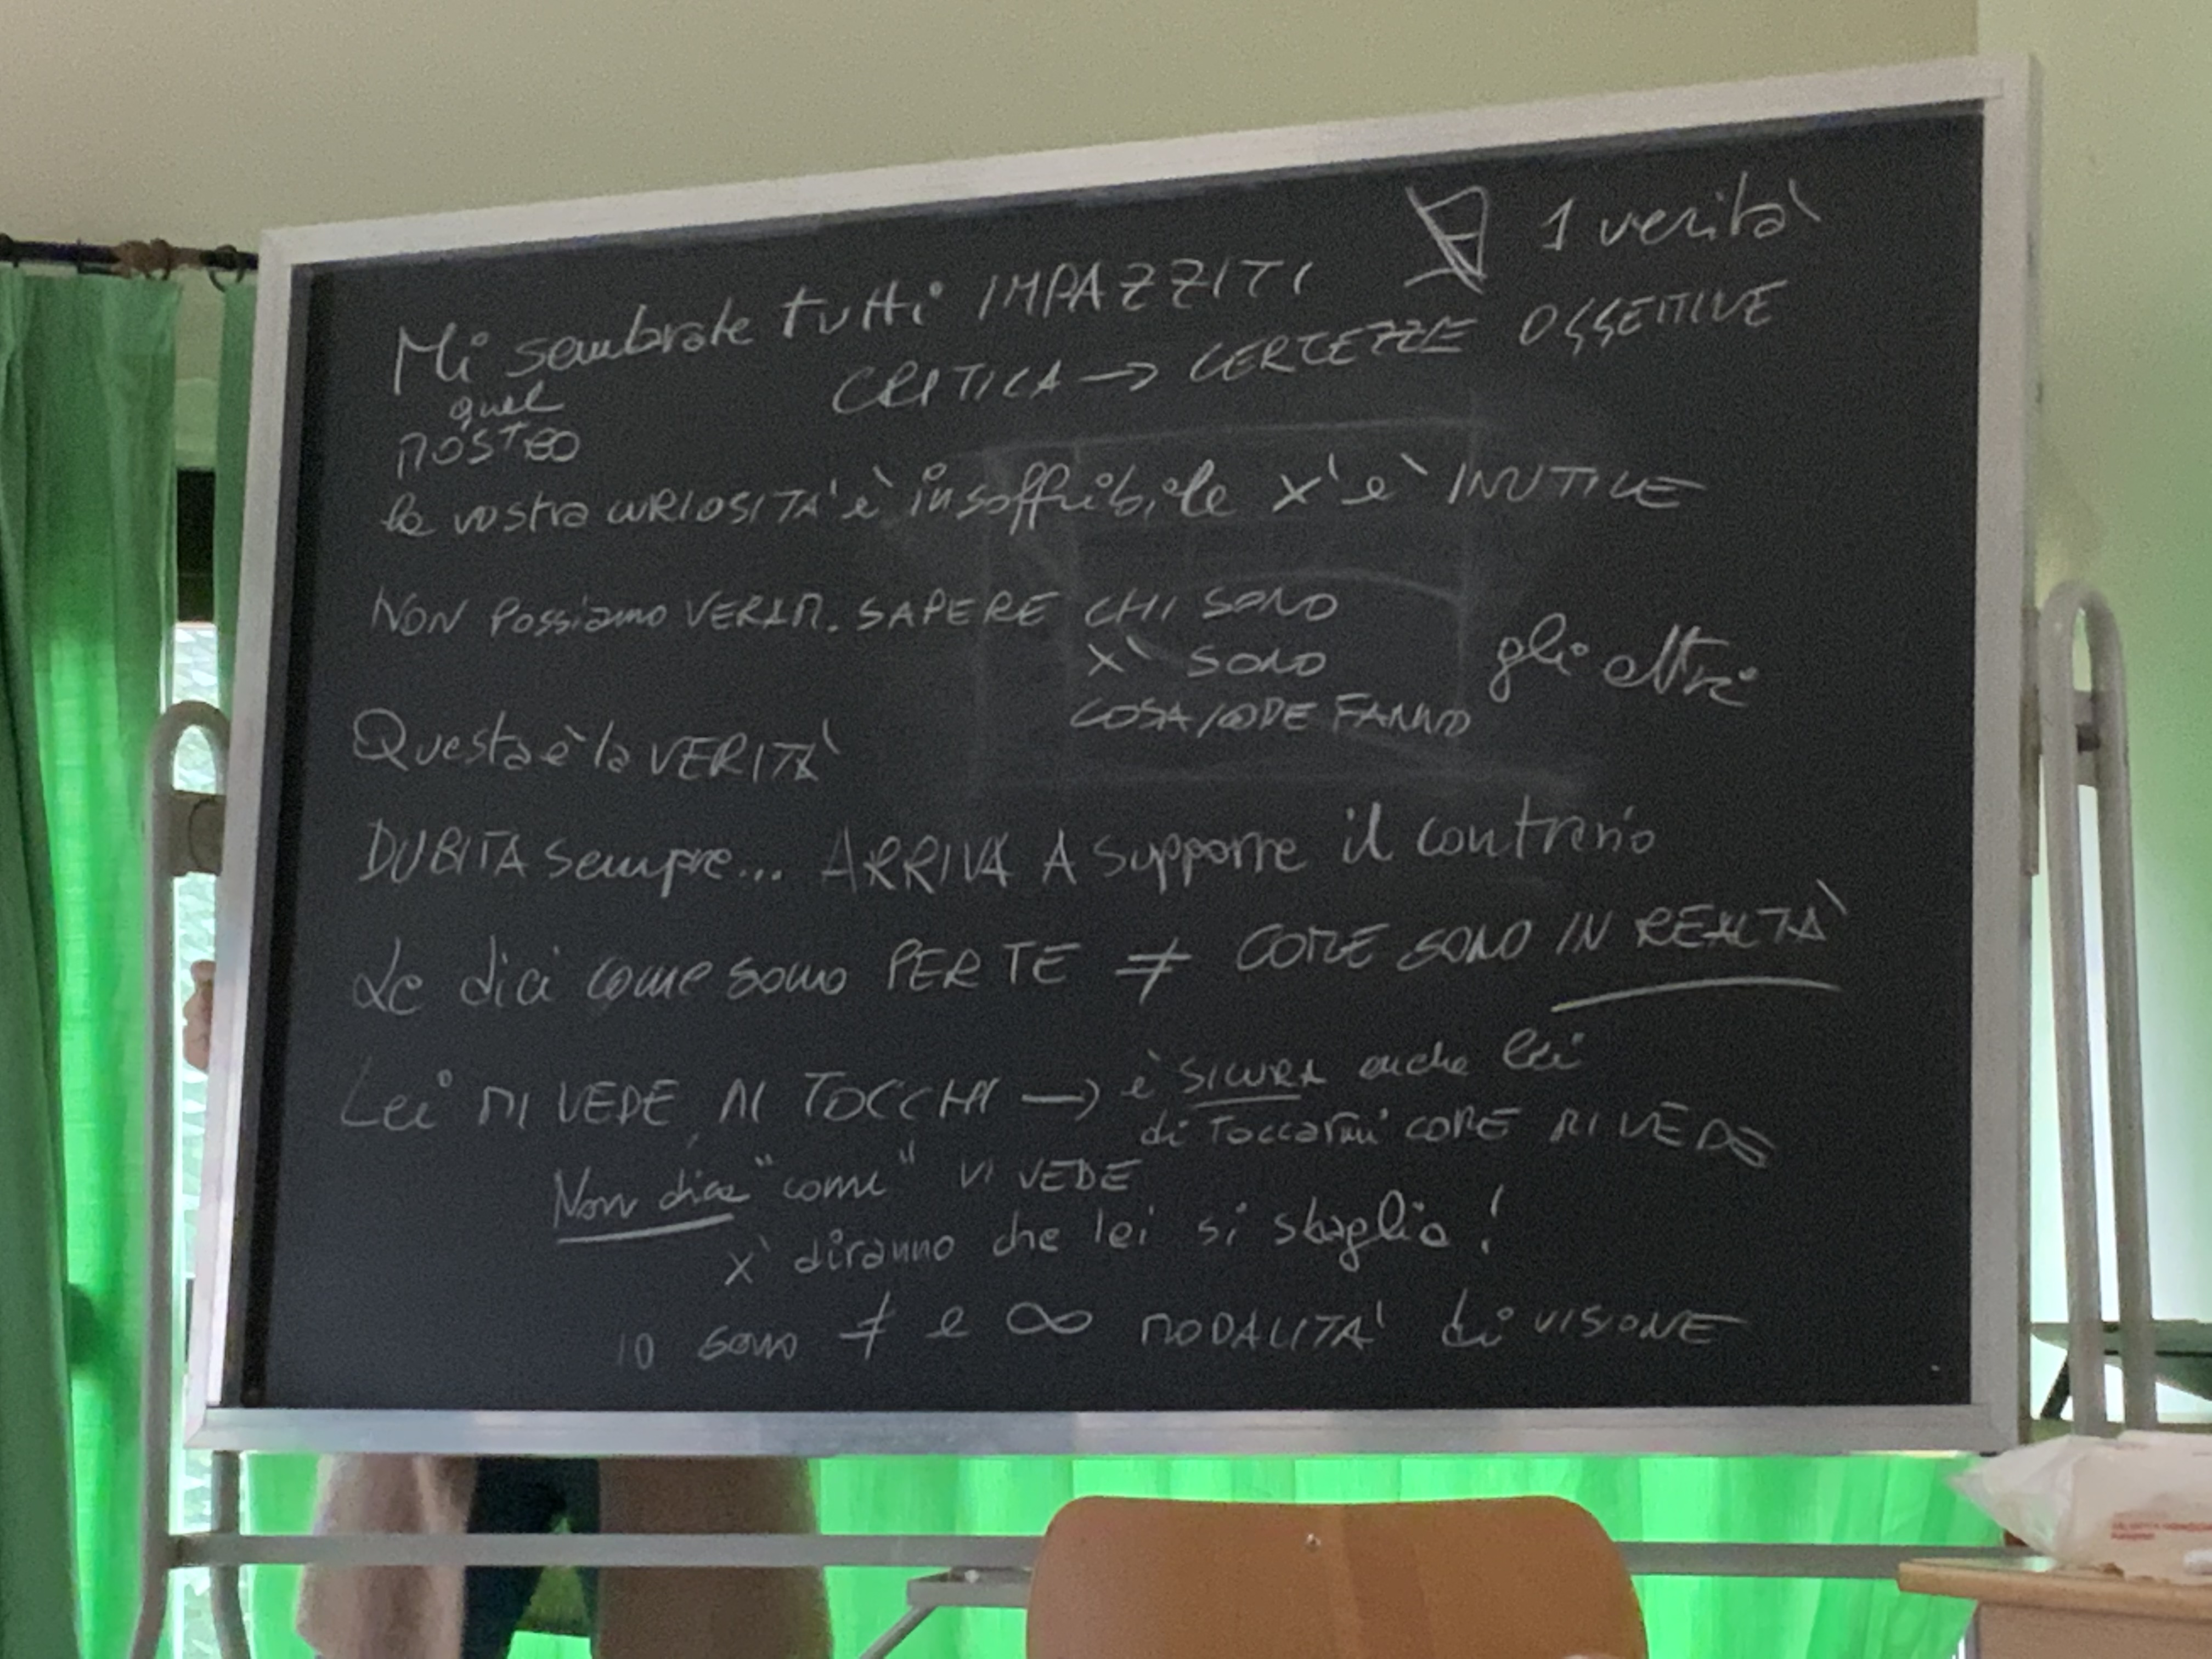 Mi sembrate tutti IMPAZZITI ∄ 1 verità
CRITICA → CERTEZZE OGGETTIVE
quel
MOSTRO
la vostra CURIOSITA' è insoffribile x' è INUTILE
NON Possiamo VERAM. SAPERE CHI SONO
x' SONO gli altri
COSA/COME FANNO
Questa è la VERITA'
DUBITA sempre... ARRIVA A supporre il contrario
Le dici come sono PER TE ≠ COME SONO IN REALTA'
Lei MI VEDE, MI TOCCHI → è SICURA anche lei
di Toccarmi COME MI VEDE
Non dica "come" VI VEDE
x' diranno che lei si sbaglia!
IO sono ≠ e ∞ MODALITA' di VISIONE